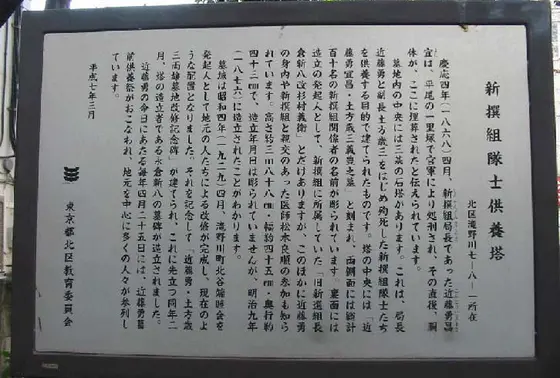 新撰組隊士供養塔
北区滝野川七-八-一所在
慶応四年(一八六八)四月、新撰組局長であった近藤勇昌
宜は、平尾の一里塚で官軍により処刑され、その直後、胴
体が、ここに埋葬されたと伝えられています。
墓地内の中央には三基の石塔があります。これは、局長
近藤勇と副長土方歳三をはじめ殉死した新撰組隊士たち
を供養する目的で建てられたものです。塔の中央には「近
藤勇宜昌・土方歳三義豊之墓」と刻まれ、両側面には総計
百十名の新撰組関係者の名前が彫られています。裏面には
造立の発起人として、新撰組に所属していた「旧新選組長
倉新八改杉村義衛」とだけありますが、このほかに近藤勇
の身内や新撰組と親交のあった医師松本良順の参加も知ら
れています。高さ約三m八十八cm・幅約四十五cm・奥行約
四十三cmで、造立年月日は彫られていませんが、明治九年
(一八七六)に造立されたことがわかります。
墓域は昭和四年(一九二九)四月、滝野川町北谷端睦会を
発起人として地元の人たちによる改修が完成し、現在のよ
うな配置となりました。それを記念して「近藤勇・土方歳
三両雄墓地改修記念碑」が建てられ、これに先立つ同年二
月、塔の造立者である永倉新八の墓碑が造立されました。
近藤勇の命日にあたる毎年四月二十五日には、近藤勇墓
前供養祭がおこなわれ、地元を中心に多くの人々が参列し
ています。
平成七年三月
東京都北区教育委員会